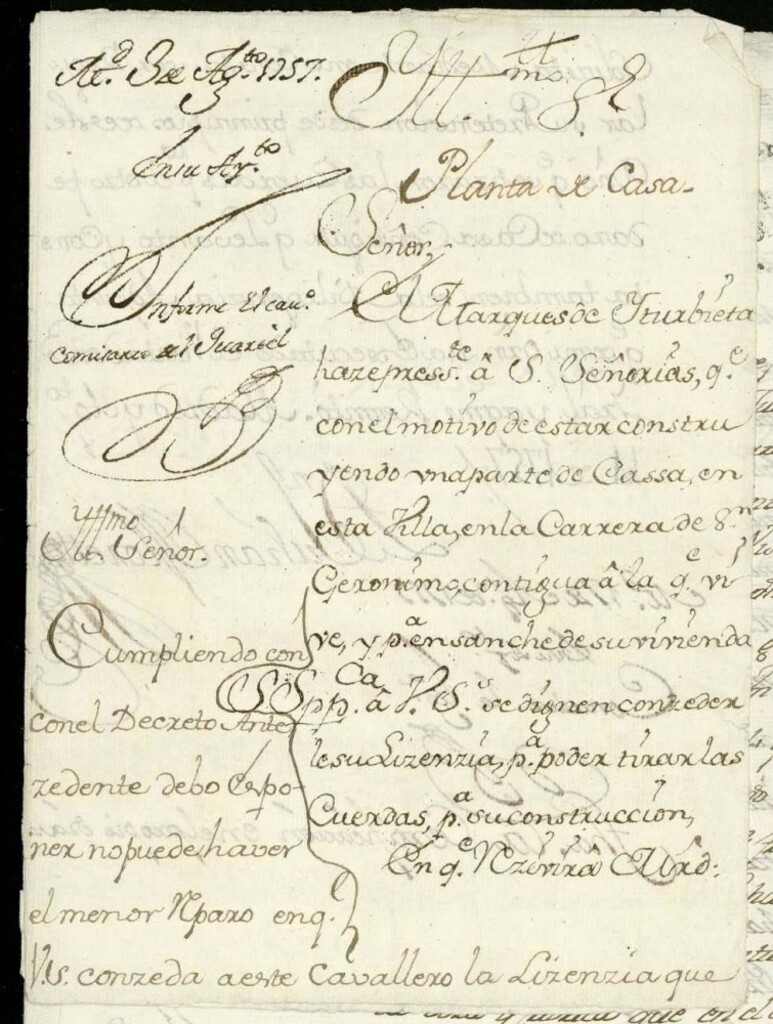 Md. 3 de Agto. 1757.
Yllmo. Sr.
En su Ayto.
Planta de Casa.
Señor,
Informe el cavo.
Comisario del Quartel
El Marques de Yturbieta
haze press.te â V. Señorias, q.e
con el motivo de estar constru
yendo vna parte de Cassa, en
esta Villa, en la Carrera de S.n
Geronimo, contigua â la q.e vi
ve, y p.a ensanche de su vivienda
Supp.ca â V. S.s se dignen conzeder
le su Lizenzia, p.a poder tirar las
Cuerdas, p.a su construccion,
En q.e Rezivirâ Mrd:
Yllmo Señor.
Cumpliendo con
con el Decreto Ante
zedente debo Expo-
ner no puede haver
el menor Reparo en q.
V.S. conzeda a este Cavallero la Lizenzia que